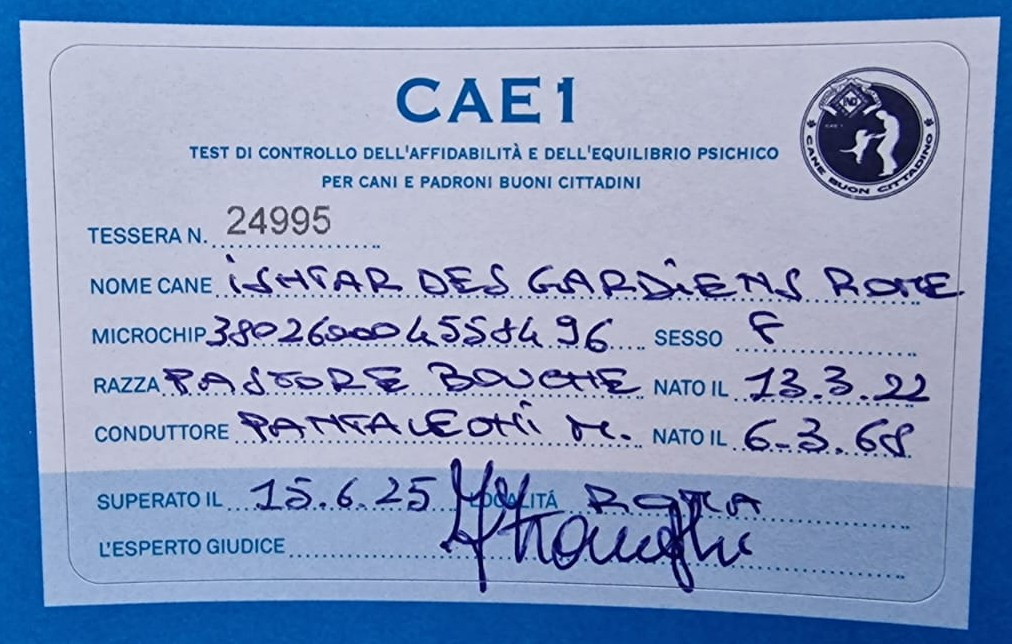 CAE1
TEST DI CONTROLLO DELL'AFFIDABILITÀ E DELL'EQUILIBRIO PSICHICO
PER CANI E PADRONI BUONI CITTADINI
CANE BUON CITTADINO
TESSERA N. 24995
NOME CANE ISHTAR DES GARDIENS ROME
MICROCHIP 380260004558496 SESSO F
RAZZA PASTORE BOUCHE NATO IL 13.3.22
CONDUTTORE PANTALEONI M. NATO IL 6-3.68
SUPERATO IL 15.6.25 LOCALITÁ ROMA
L'ESPERTO GIUDICE